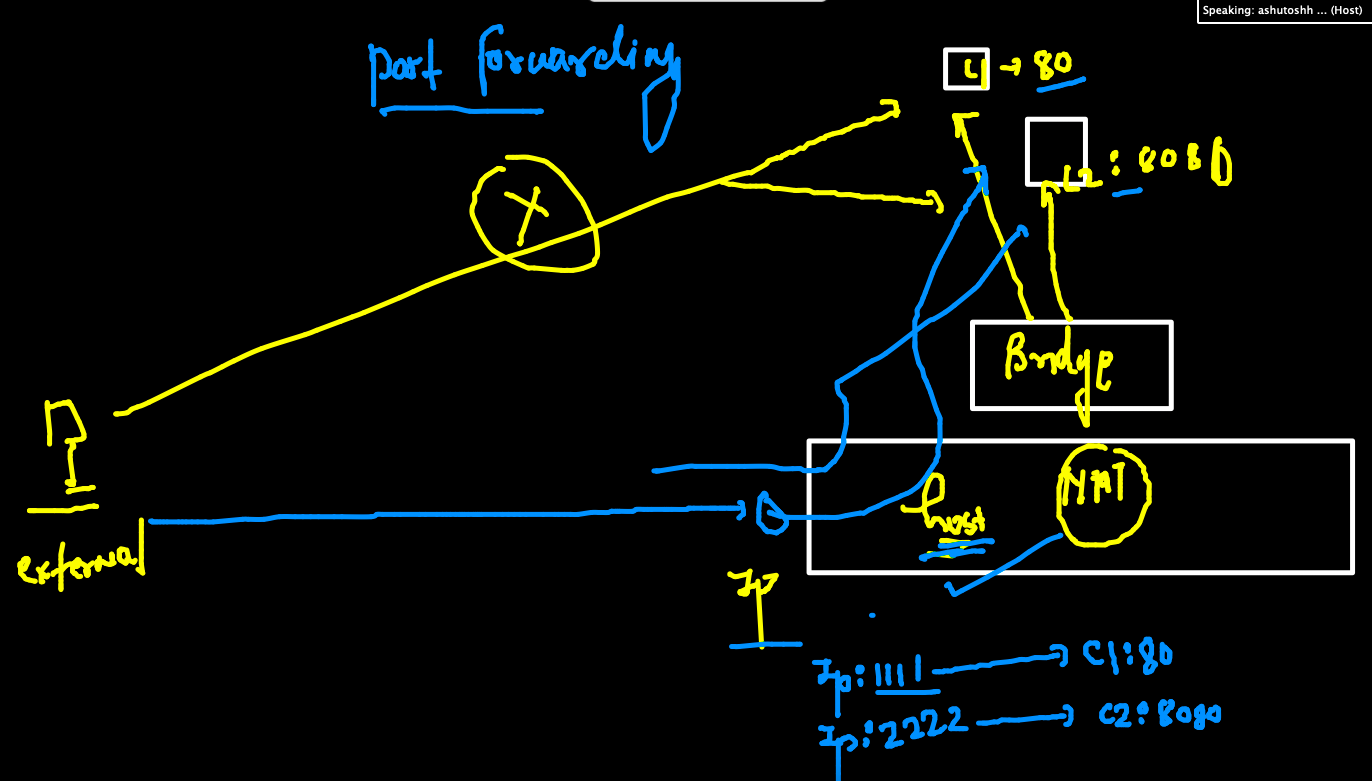 Speaking: ashutoshh ... (Host)
port forwarding
C1 → 80
C2 : 8080
X
Bridge
NAT
host
external
Ip
Ip:1111 → C1:80
Ip:2222 → C2:8080